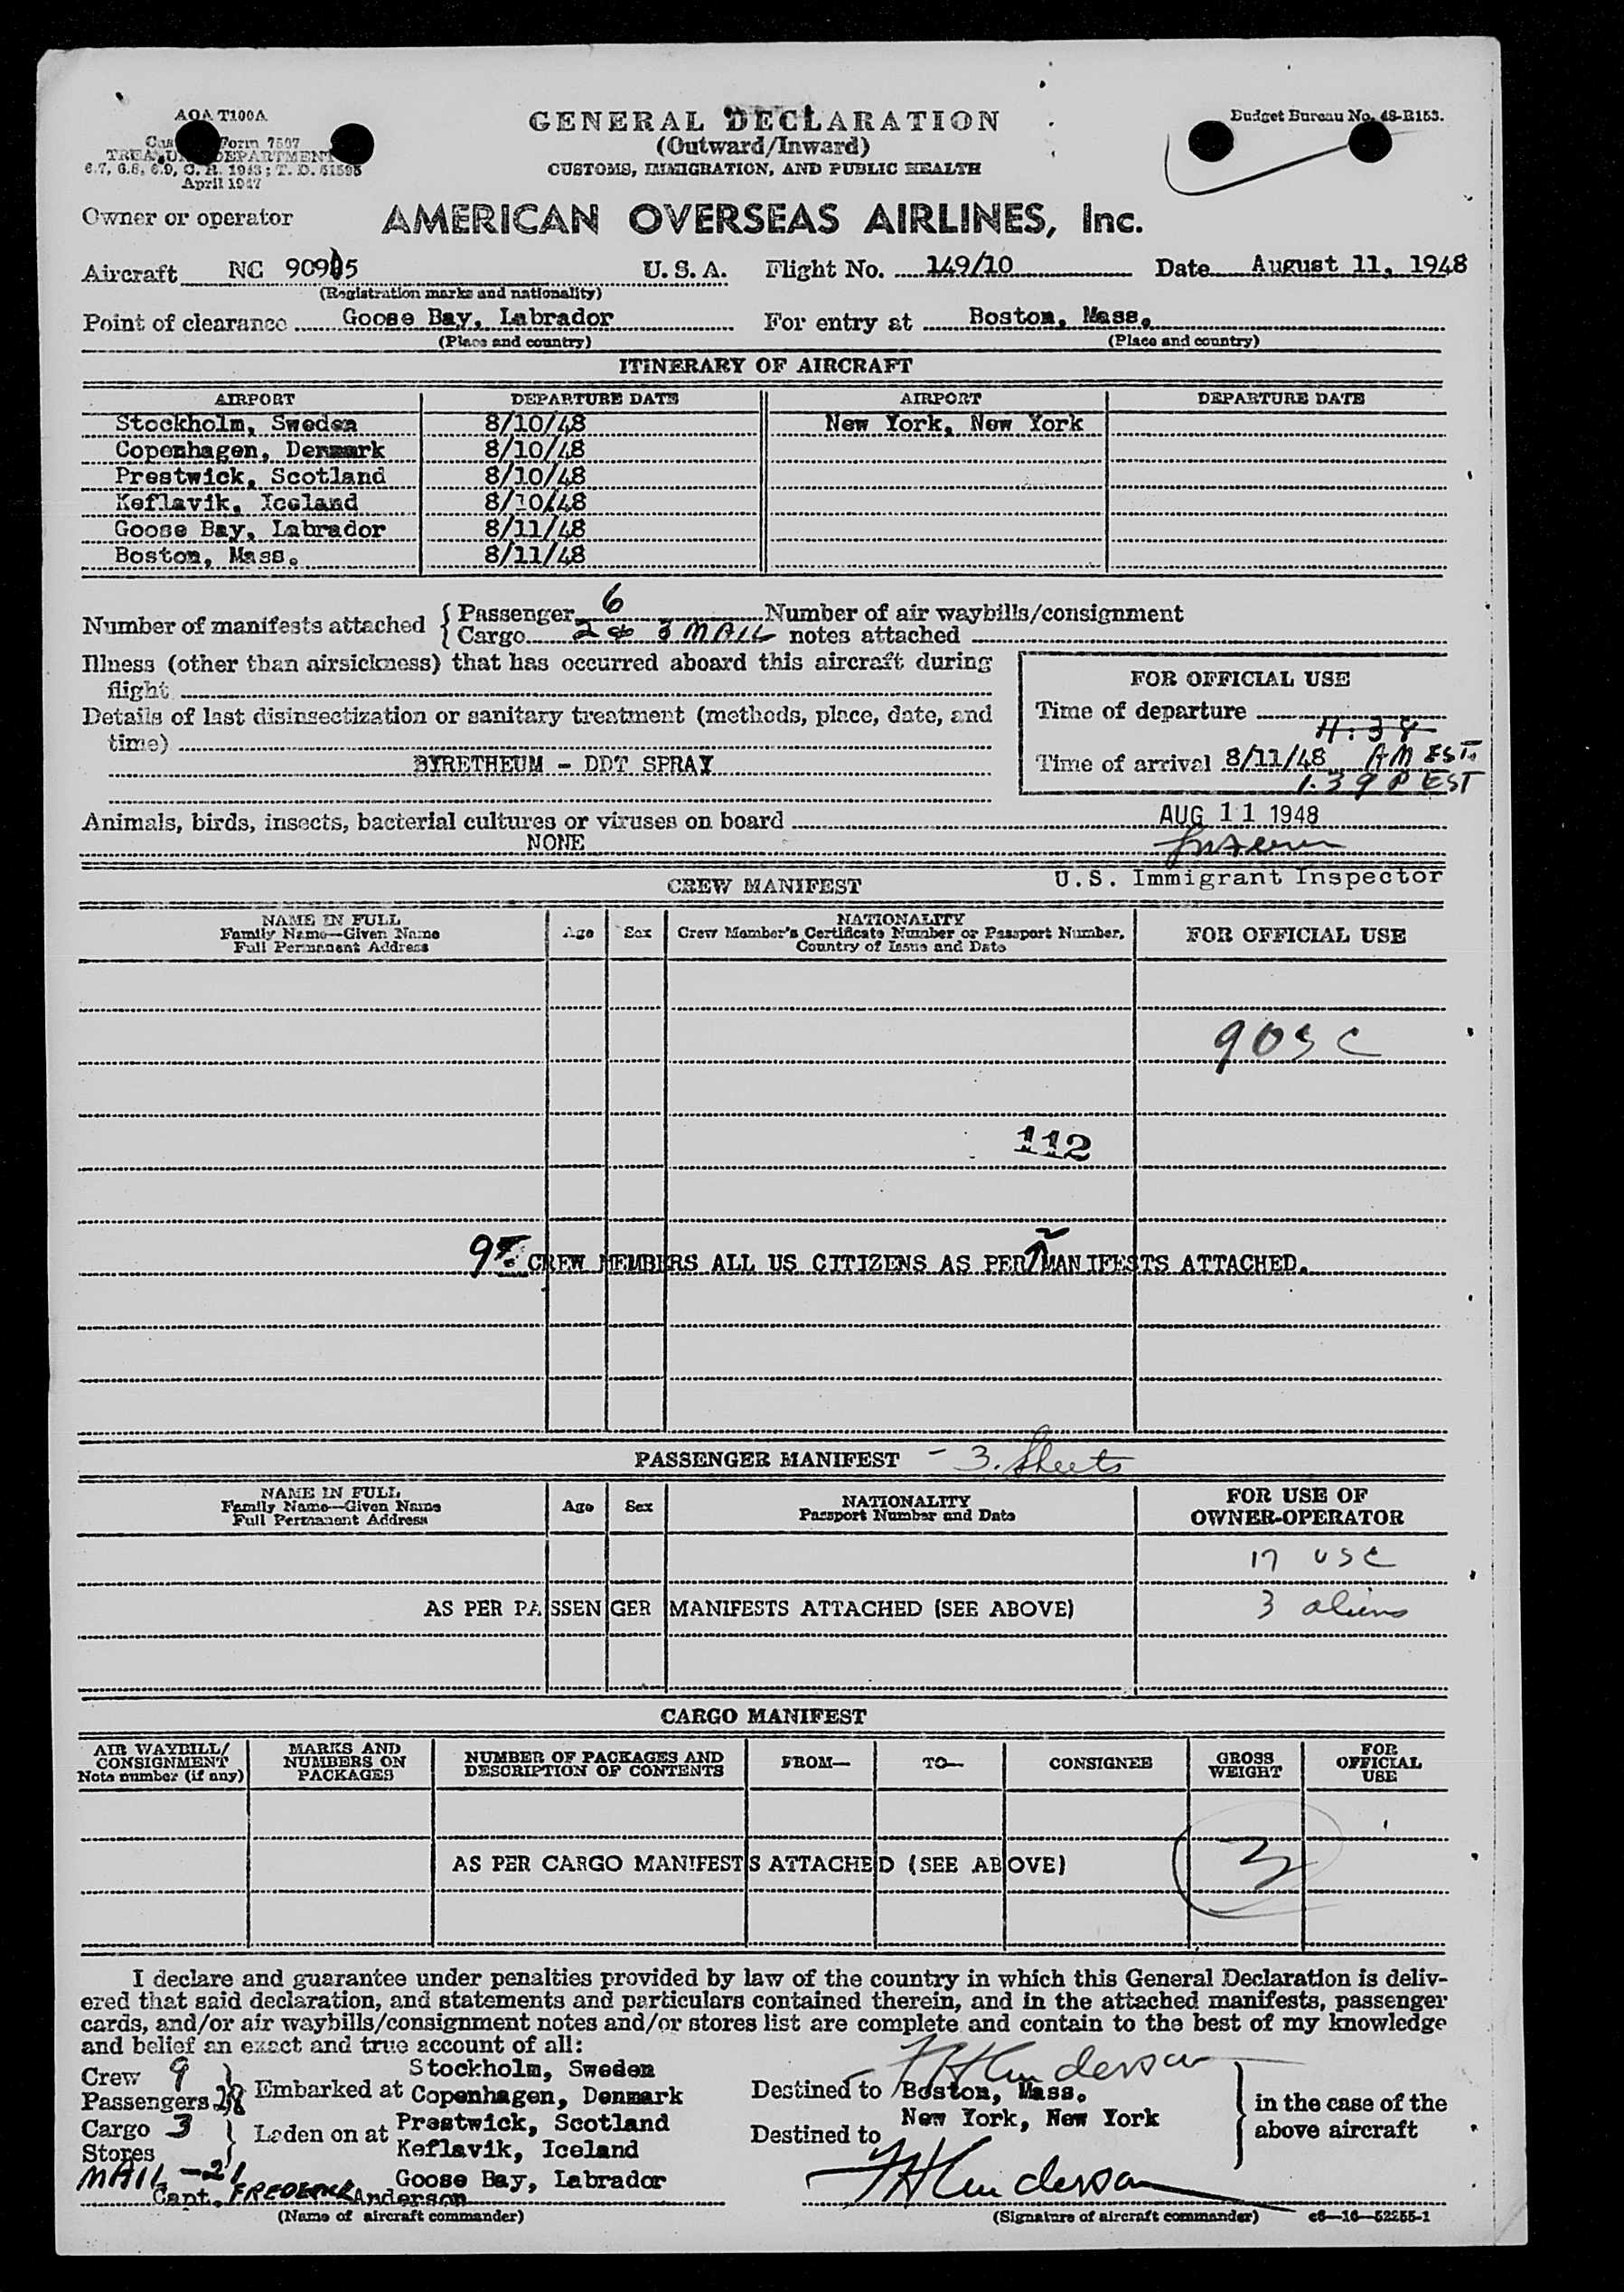 AOA T100A
Form 7507
TREASURY DEPARTMENT
6.7, 6.8, 6.9, C. R. 1943; T. D. 51595
April 1947
Budget Bureau No. 48-R153.
GENERAL DECLARATION
(Outward/Inward)
CUSTOMS, IMMIGRATION, AND PUBLIC HEALTH
Owner or operator AMERICAN OVERSEAS AIRLINES, Inc.
Aircraft NC 90905 U. S. A. Flight No. 149/10 Date August 11, 1948
(Registration marks and nationality)
Point of clearance Goose Bay, Labrador For entry at Boston, Mass.
(Place and country) (Place and country)
ITINERARY OF AIRCRAFT
AIRPORT DEPARTURE DATE AIRPORT DEPARTURE DATE
Stockholm, Sweden 8/10/48 New York, New York
Copenhagen, Denmark 8/10/48
Prestwick, Scotland 8/10/48
Keflavik, Iceland 8/10/48
Goose Bay, Labrador 8/11/48
Boston, Mass. 8/11/48
Number of manifests attached { Passenger 6 Number of air waybills/consignment
Cargo 2 & 3 MAIL notes attached
Illness (other than airsickness) that has occurred aboard this aircraft during
flight
Details of last disinsectization or sanitary treatment (methods, place, date, and
time)
BYRETHEUM - DDT SPRAY
FOR OFFICIAL USE
Time of departure
11:38
Time of arrival 8/11/48 AM EST.
1.39 P EST
Animals, birds, insects, bacterial cultures or viruses on board AUG 11 1948
NONE
U.S. Immigrant Inspector
CREW MANIFEST
NAME IN FULL
Family Name—Given Name
Full Permanent Address
Age Sex
NATIONALITY
Crew Member's Certificate Number or Passport Number,
Country of Issue and Date
FOR OFFICIAL USE
9 USC
112
9 CREW MEMBERS ALL US CITIZENS AS PER 2 MANIFESTS ATTACHED.
PASSENGER MANIFEST - 3. Sheets
NAME IN FULL
Family Name—Given Name
Full Permanent Address
Age Sex
NATIONALITY
Passport Number and Date
FOR USE OF
OWNER-OPERATOR
17 USC
AS PER PASSENGER MANIFESTS ATTACHED (SEE ABOVE) 3 aliens
CARGO MANIFEST
AIR WAYBILL/
CONSIGNMENT
Note number (if any)
MARKS AND
NUMBERS ON
PACKAGES
NUMBER OF PACKAGES AND
DESCRIPTION OF CONTENTS
FROM— TO— CONSIGNEE
GROSS
WEIGHT
FOR
OFFICIAL
USE
AS PER CARGO MANIFESTS ATTACHED (SEE ABOVE) 3
I declare and guarantee under penalties provided by law of the country in which this General Declaration is deliv-
ered that said declaration, and statements and particulars contained therein, and in the attached manifests, passenger
cards, and/or air waybills/consignment notes and/or stores list are complete and contain to the best of my knowledge
and belief an exact and true account of all:
Crew 9
Passengers 28
Cargo 3
Stores
MAIL - 21
Embarked at
Laden on at
Stockholm, Sweden
Copenhagen, Denmark
Prestwick, Scotland
Keflavik, Iceland
Goose Bay, Labrador
FHAnderson
Destined to Boston, Mass.
New York, New York
Destined to
in the case of the
above aircraft
Capt. FREDERICK Anderson
FHAnderson
(Name of aircraft commander) (Signature of aircraft commander) c6—16—52255-1